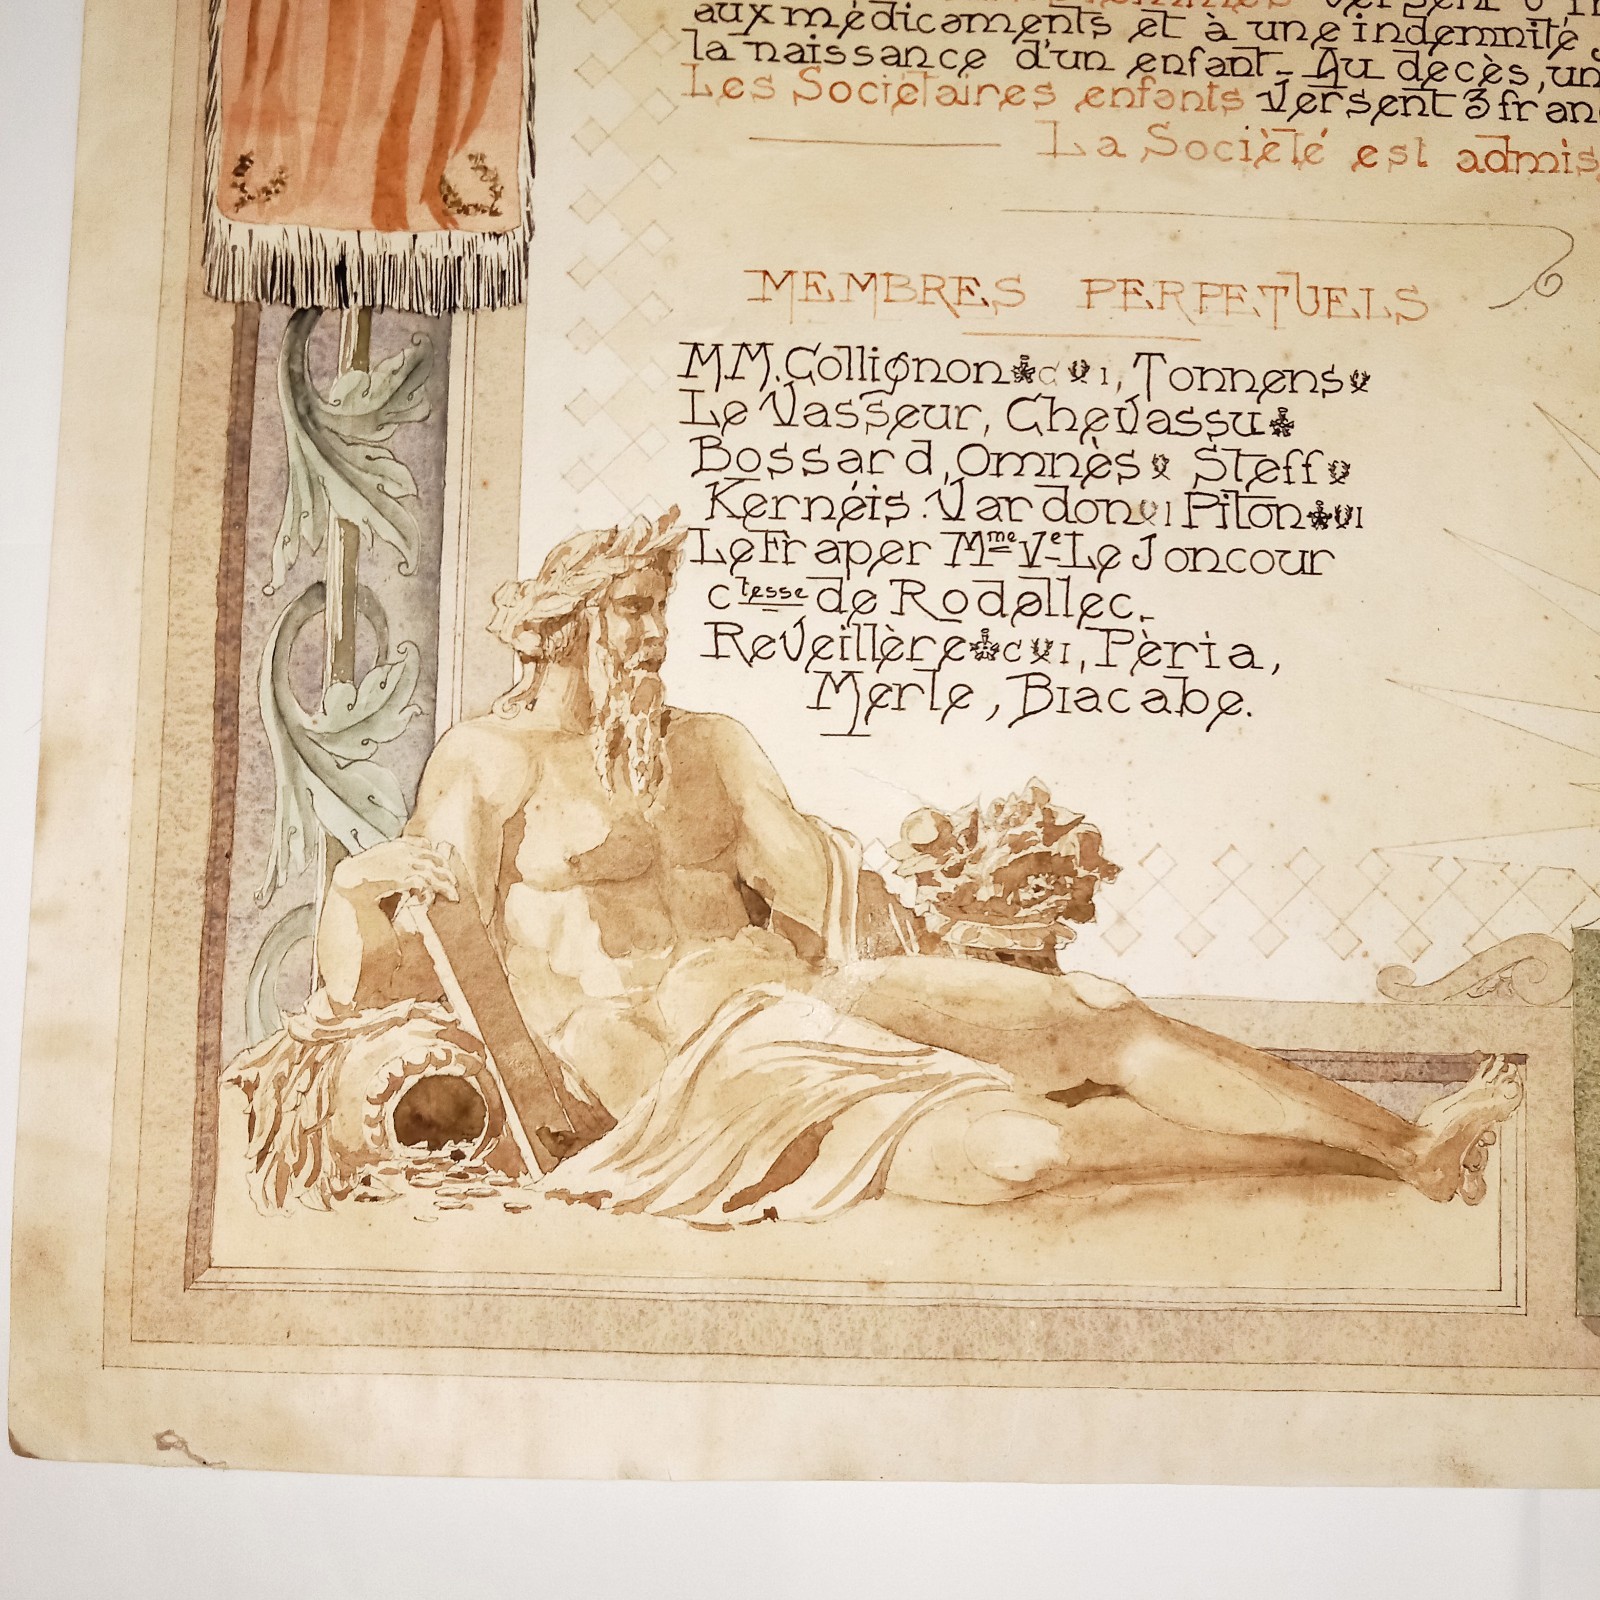 versent 6
aux médicaments et à une indemnité
la naissance d'un enfant_ Au decès, un
Les Sociétaires enfants Versent 3 fran
La Société est admis
MEMBRES PERPETUELS
MM. Collignon C I, Tonnens
Le Vasseur, Chevassu
Bossard, Omnès Steff
Kernéis. Vardon I Piton I
Le Fraper Mme Ve Le Joncour
Ctesse de Rodellec_
Reveillère C I, Pèria,
Merle, Biacabe.